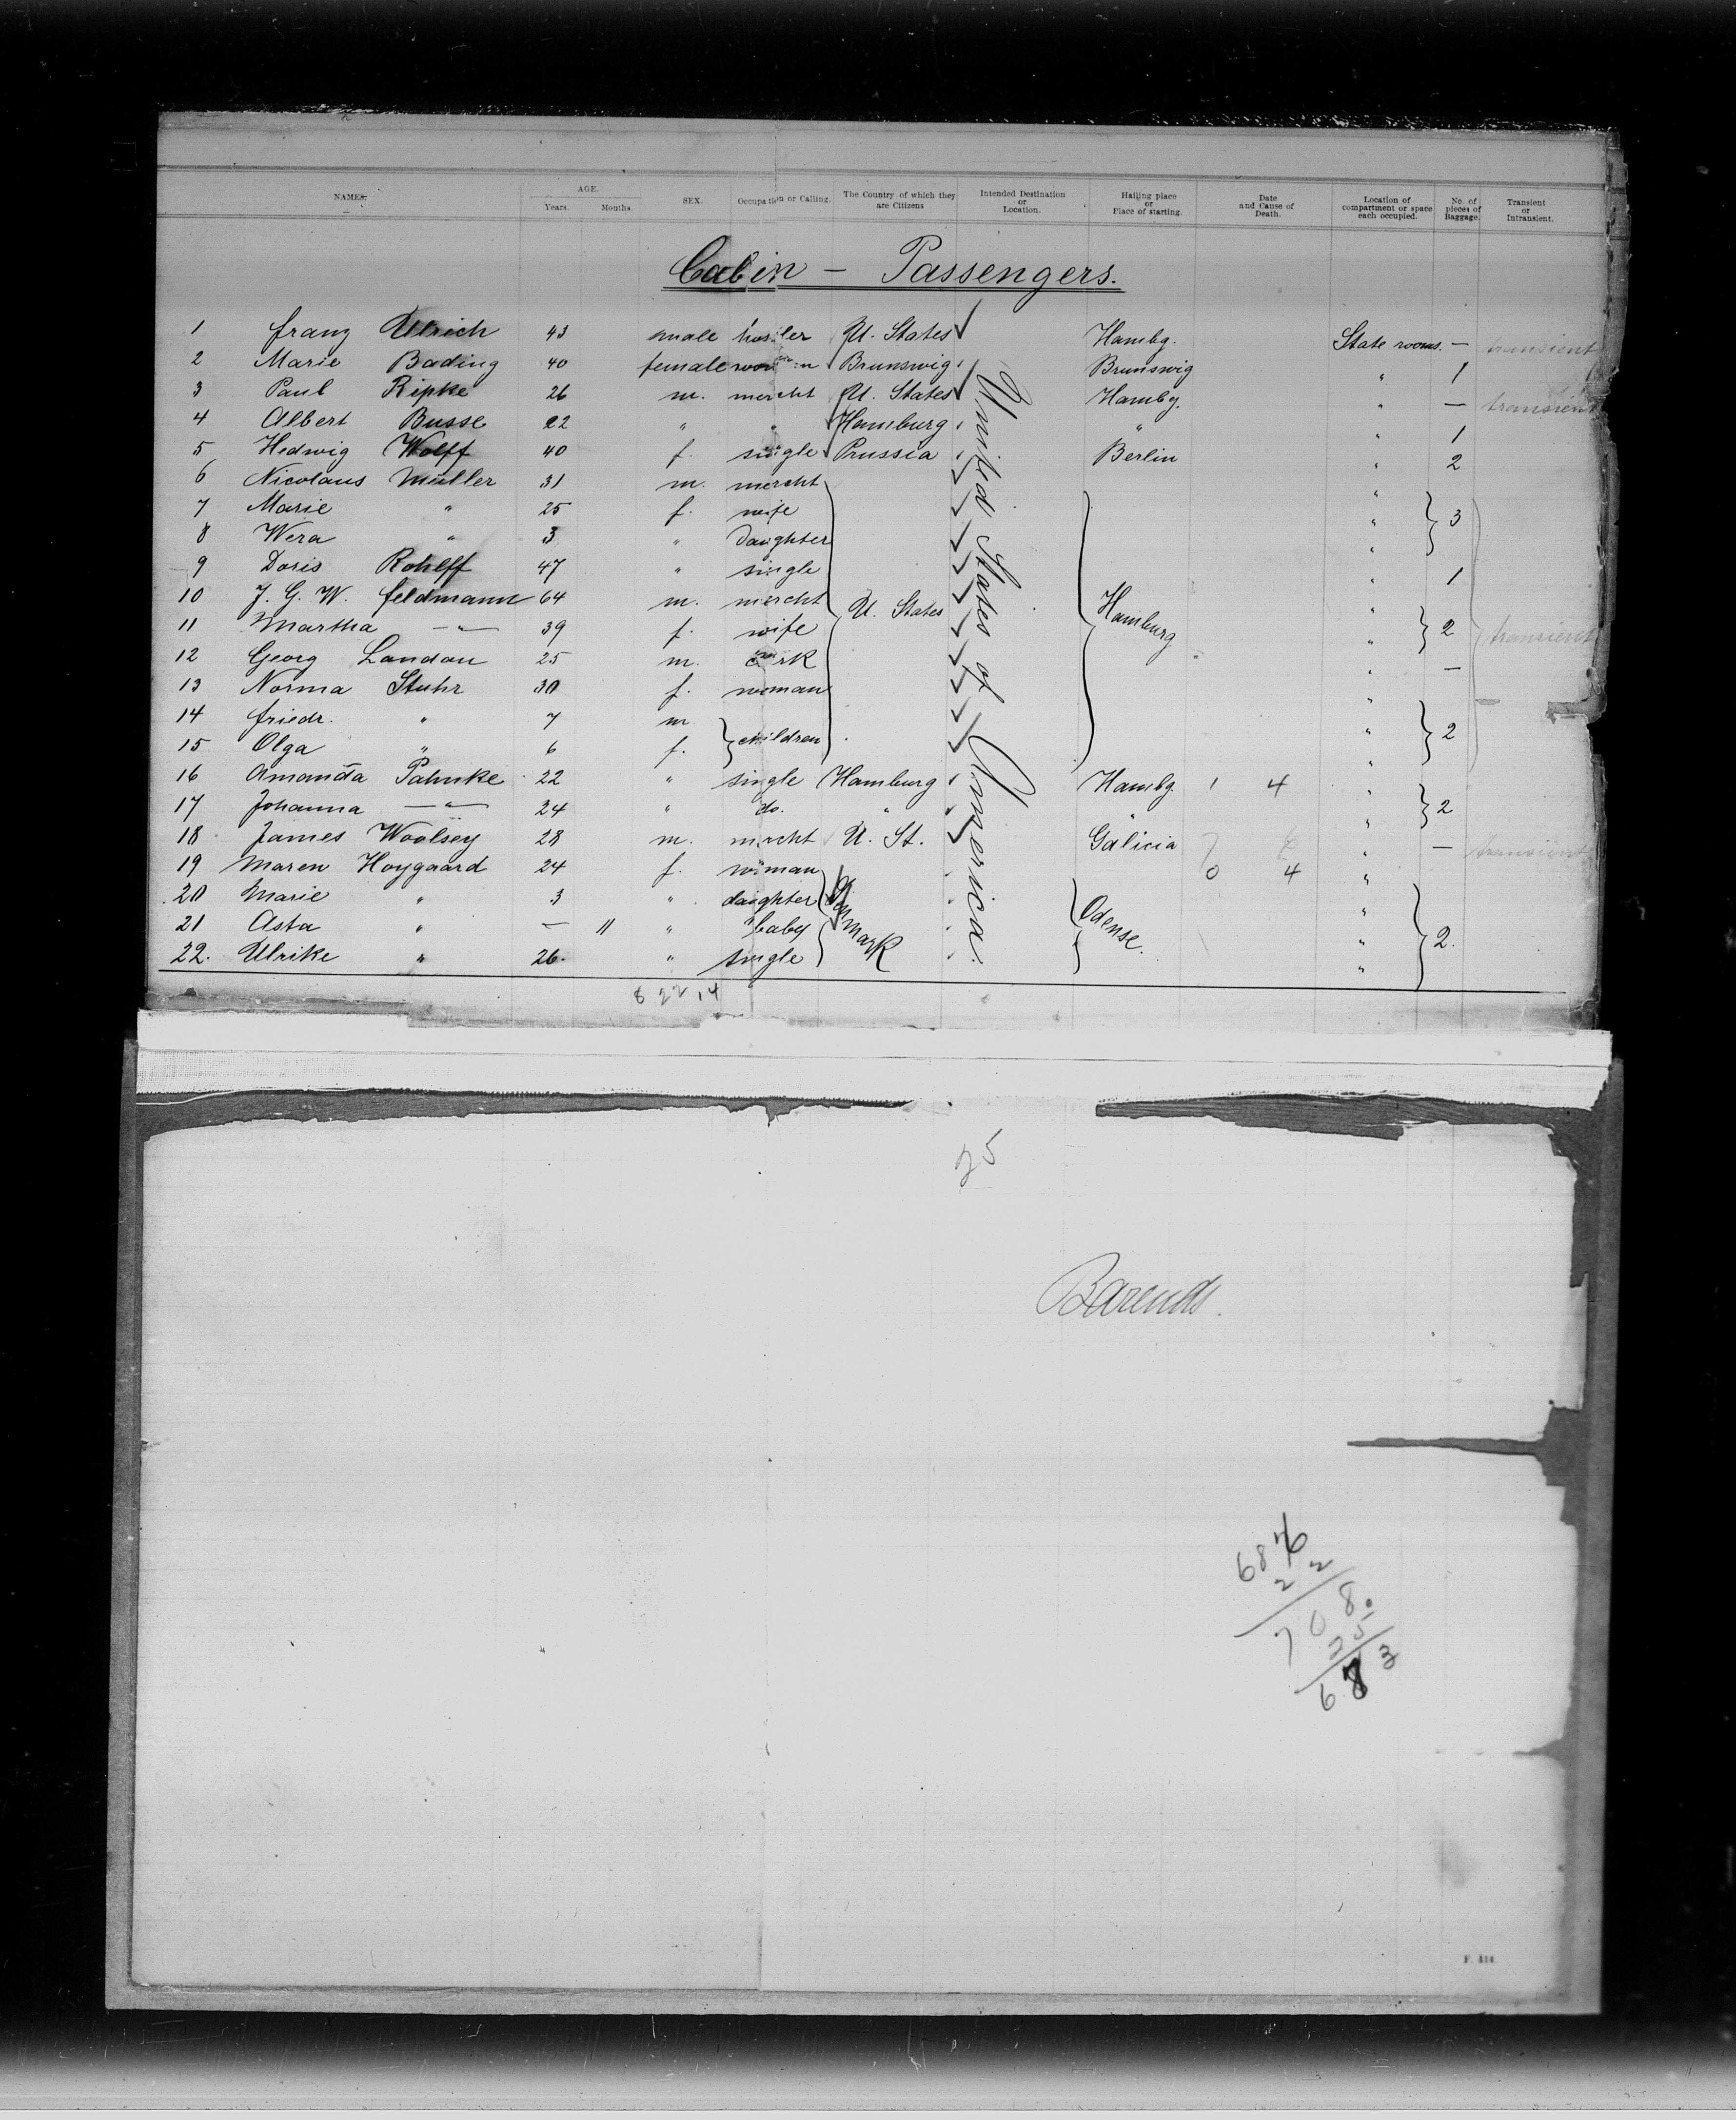 NAMES. AGE. Years. Months. SEX. Occupation or Calling. The Country of which they are Citizens Intended Destination or Location. Hailing place or Place of starting. Date and Cause of Death. Location of compartment or space each occupied. No. of pieces of Baggage. Transient or Intransient.
Cabin – Passengers.
1 Franz Ullrich 43 male hostler U. States Hambg. State rooms. — transient
2 Marie Bading 40 female woman Brunswig Brunswig " 1
3 Paul Ripke 26 m. mercht U. States Hambg. " — transient
4 Albert Busse 22 " " Hamburg " " 1
5 Hedwig Wolff 40 f. single Prussia Berlin " 2
6 Nicolaus Müller 31 m. mercht "
7 Marie " 25 f. wife " 3
8 Wera " 3 " daughter "
9 Doris Rohlff 47 " single " 1
10 J. G. W. Feldmann 64 m. mercht U. States Hamburg "
11 Martha —"— 39 f. wife " 2 transient
12 Georg Landau 25 m. clerk " —
13 Norma Stuhr 30 f. woman "
14 Friedr. " 7 m. children " 2
15 Olga " 6 f. "
16 Amanda Pahnke 22 " single Hamburg Hambg. 1 4 "
17 Johanna —"— 24 " do. " " " 2
18 James Woolsey 28 m. mercht U. St. Galicia " — transient
19 Maren Hoygaard 24 f. woman 0 4 "
20 Marie " 3 " daughter Denmark Odense. "
21 Asta " — 11 " baby " 2.
22. Ulrike " 26. " single "
United States of America.
8 22 14
25
Barends.
686
22
708.
25
683
F. 414.